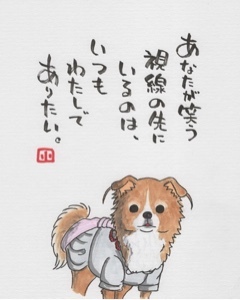 あなたが笑う
視線の先に
いるのは、
いつも
わたしで
ありたい。